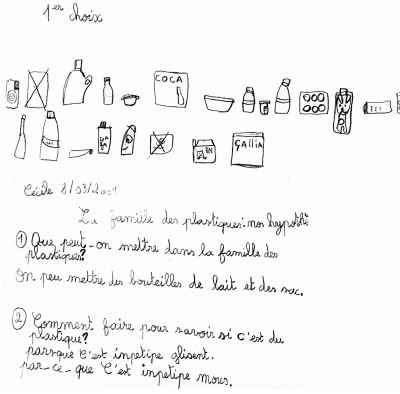 1er choix
COCA
GALLIA
Cécile 8/03/2001
La famille des plastiques: nos hypothè
① Que peut-on mettre dans la famille des
plastiques?
On peu mettre des bouteilles de lait et des sac.
② Comment faire pour savoir si c'est du
plastique?
parsque c'est inpetipe glisent.
par-ce-que C'est inpetipe mous.